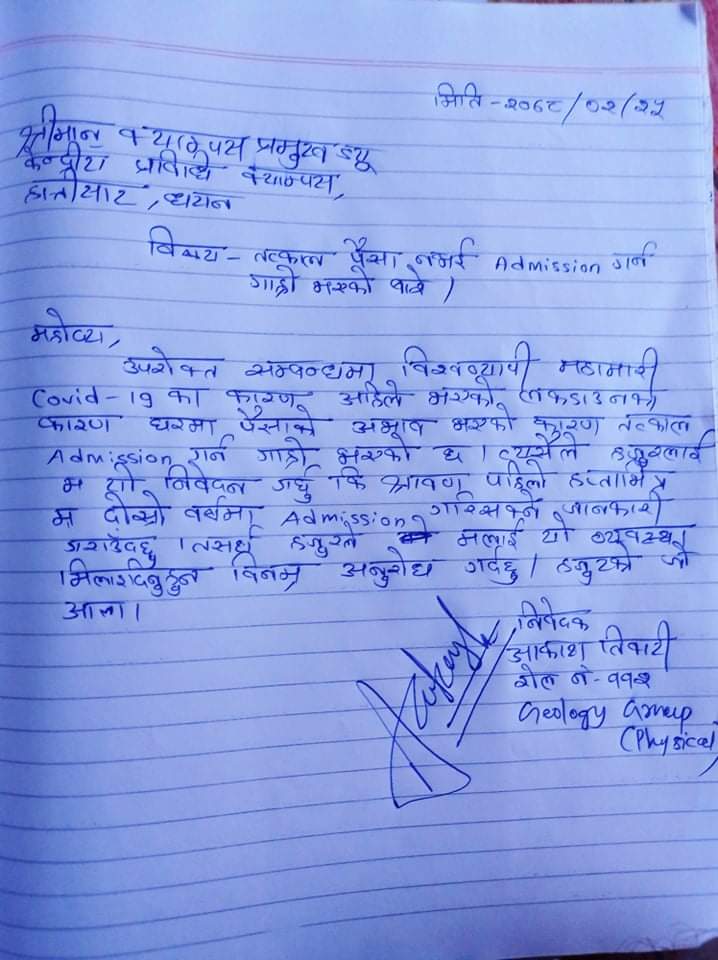 मिति - २०७८/०२/२५
श्रीमान् क्याम्पस प्रमुख ज्यू
केन्द्रीय प्रविधि क्याम्पस,
हात्तीसार, धरान
विषय - तत्काल पैसा नभई Admission गर्न
गाह्रो भएको बारे ।
महोदय,
उपरोक्त सम्बन्धमा विश्वव्यापी महामारी
Covid-19 का कारण अहिले भएको लकडाउनका
कारण घरमा पैसाको अभाव भएको कारण तत्काल
Admission गर्न गाह्रो भएको छ । त्यसैले हजुरलाई
म यो निवेदन गर्छु कि श्रावण पहिलो हप्ताभित्र
म दोस्रो वर्षमा Admission गरिसक्ने जानकारी
गराउँदछु । तसर्थ हजुरले मलाई यो व्यवस्था
मिलाइदिनुहुन विनम्र अनुरोध गर्दछु । हजुरको जो
आज्ञा ।
निवेदक
आकाश तिवारी
रोल नं - ११२
Geology Group
(Physical)